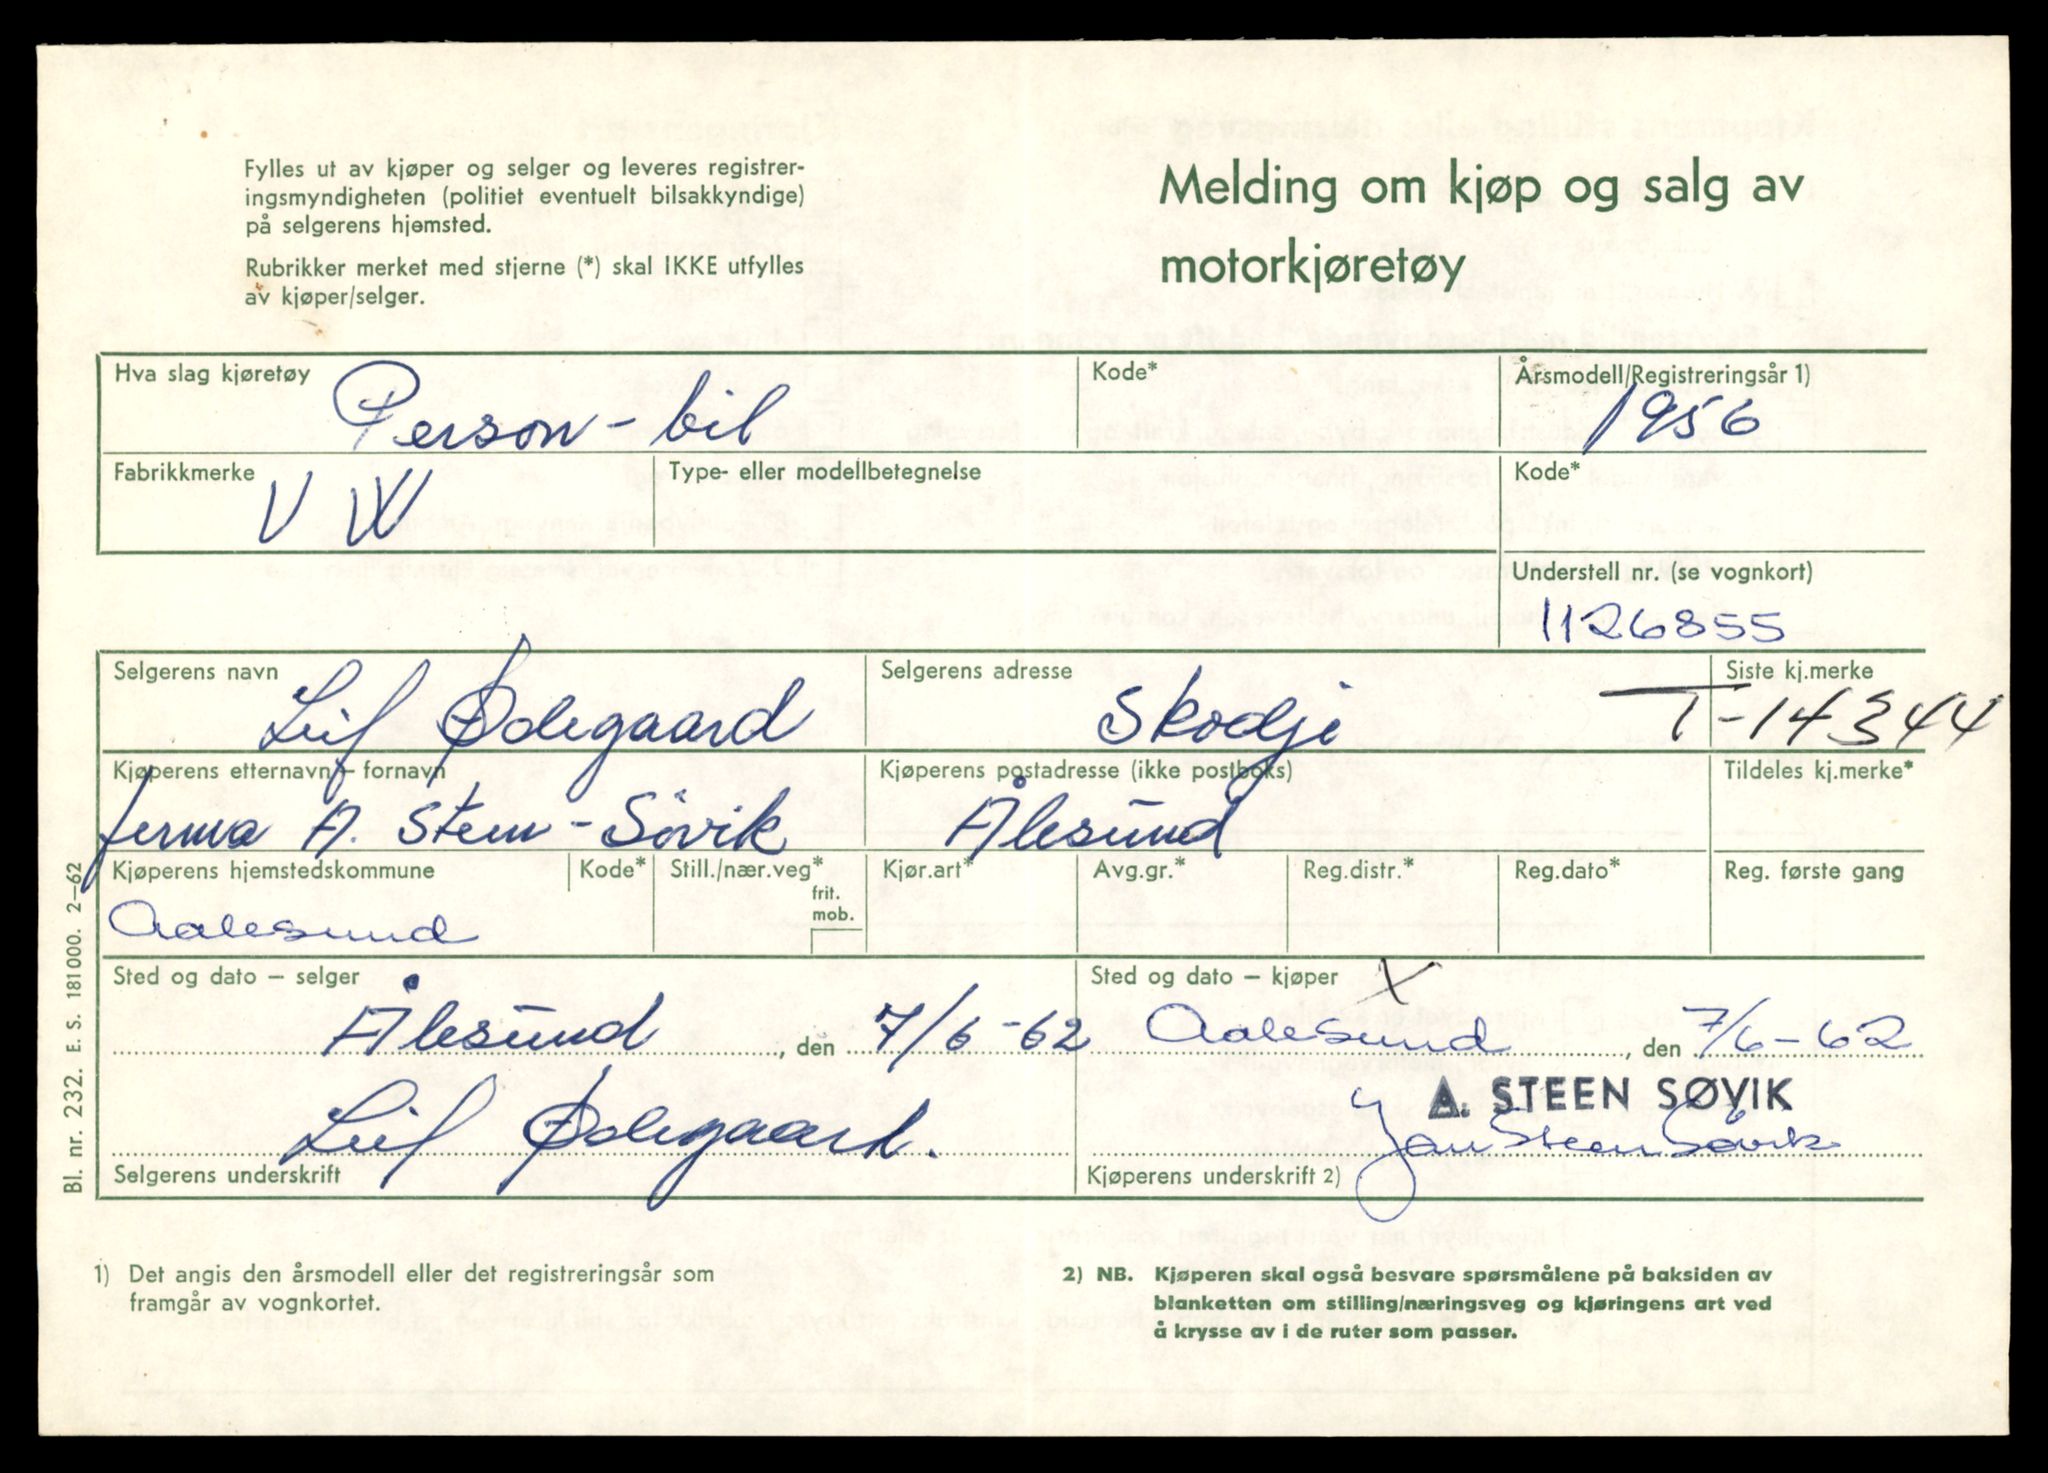 Fylles ut av kjøper og selger og leveres registrer-
ingsmyndigheten (politiet eventuelt bilsakkyndige)
på selgerens hjemsted.
Rubrikker merket med stjerne (*) skal IKKE utfylles
av kjøper/selger.
Melding om kjøp og salg av
motorkjøretøy
Hva slag kjøretøy
Person-bil
Kode*
Årsmodell/Registreringsår 1)
1956
Fabrikkmerke
VW
Type- eller modellbetegnelse
Kode*
Understell nr. (se vognkort)
1126855
Selgerens navn
Leif Ødegaard
Selgerens adresse
Skodje
Siste kj.merke
T-14344
Kjøperens etternavn - fornavn
ferma A. Steen-Søvik
Kjøperens postadresse (ikke postboks)
Ålesund
Tildeles kj.merke*
Kjøperens hjemstedskommune
Aalesund
Kode*
Still./nær.veg*
frit.
mob.
Kjør.art*
Avg.gr.*
Reg.distr.*
Reg.dato*
Reg. første gang
Sted og dato - selger
Ålesund, den 7/6-62
Leif Ødegaard.
Selgerens underskrift
Sted og dato - kjøper X
Aalesund, den 7/6-62
A. STEEN SØVIK
Jan Steen Søvik
Kjøperens underskrift 2)
Bl. nr. 232. E. S. 181000. 2-62
1) Det angis den årsmodell eller det registreringsår som
framgår av vognkortet.
2) NB. Kjøperen skal også besvare spørsmålene på baksiden av
blanketten om stilling/næringsveg og kjøringens art ved
å krysse av i de ruter som passer.